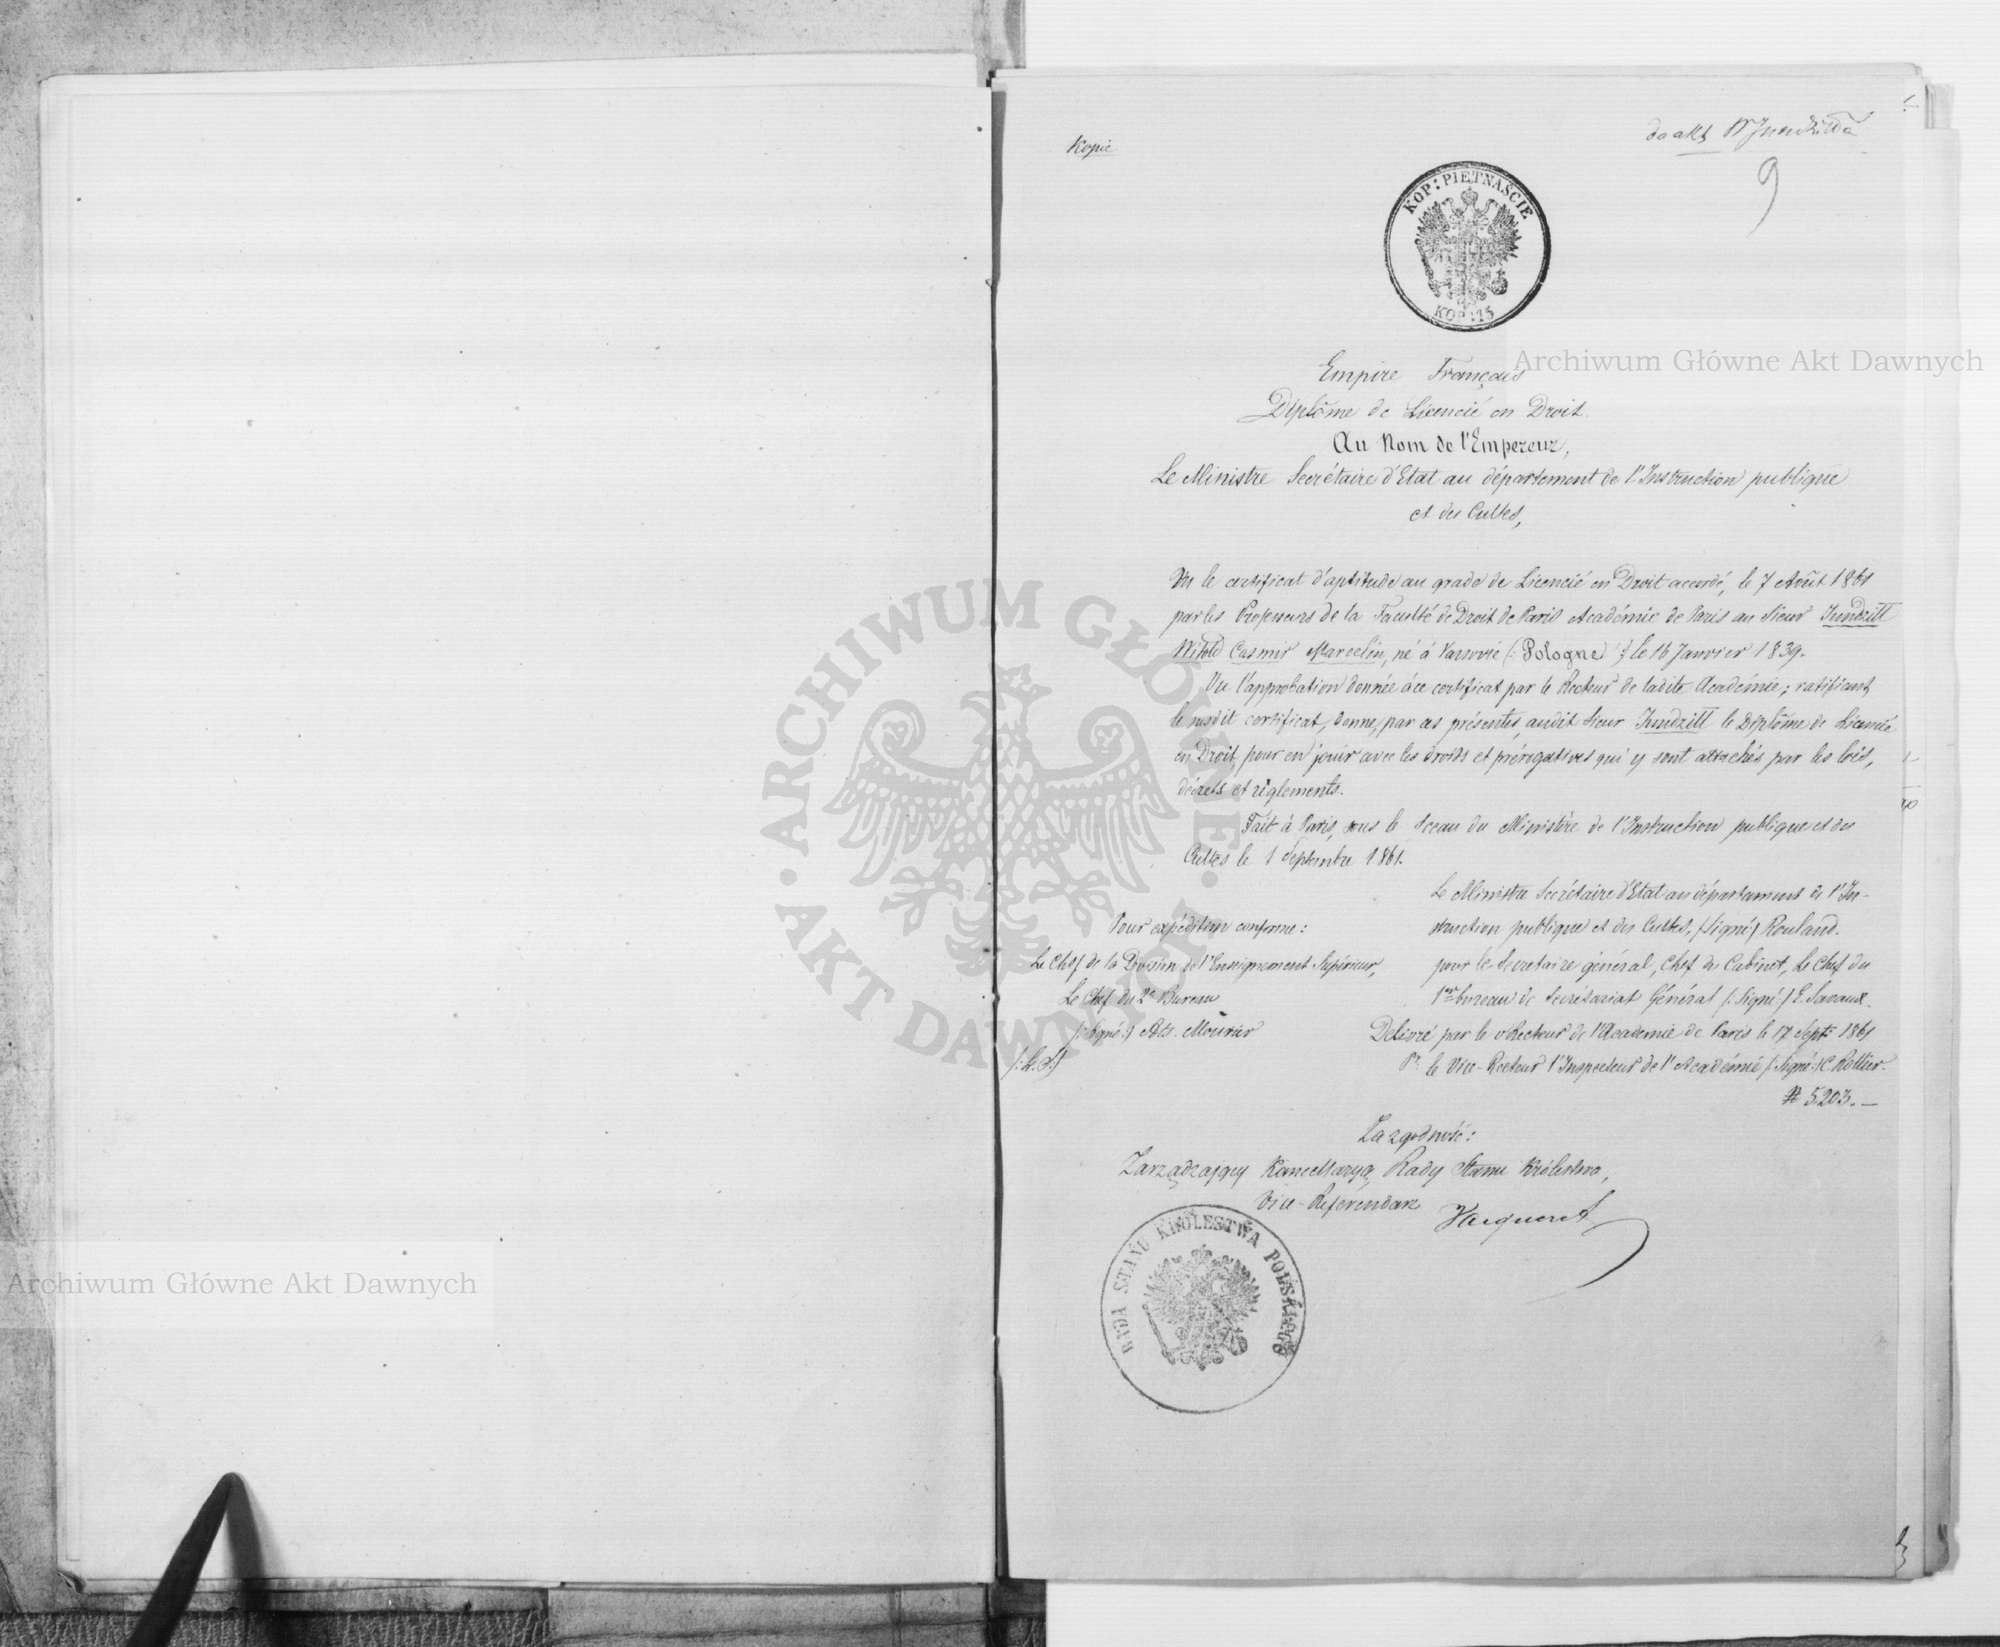 Kopie
do akt Wo Jundziłła
9
KOP: PIĘTNAŚCIE
KOP: 15
Empire Français
Diplôme de Licencié en Droit.
Au Nom de l'Empereur,
Le Ministre Secrétaire d'Etat au département de l'Instruction publique
et des Cultes,
Vu le certificat d'aptitude au grade de Licencié en Droit accordé, le 7 Août 1861
par les Professeurs de la Faculté de Droit de Paris Académie de Paris au Sieur Jundzitt
Witold Casmir Marcelin, né à Varsovie (: Pologne :) le 16 Janvier 1839.
Vu l'approbation donnée à ce certificat par le Recteur de ladite Académie; ratifiant
le susdit certificat, donne, par ces présentes, audit Sieur Jundzitt le Diplôme de Licencié
en Droit, pour en jouir avec les droits et prérogatives qui y sont attachés par les lois,
décrets et règlements.
Fait à Paris, sous le Sceau du Ministère de l'Instruction publique et des
Cultes le 1 Septembre 1861.
Le Ministre Secrétaire d'Etat au département de l'In-
struction publique et des Cultes, (Signé) Rouland.
Pour expédition conforme:
Le Chef de la Division de l'Enseignement Supérieur,
Le Chef du 2e Bureau
(: Signé:)  Mourier
(: L. S.)
pour le Secretaire général, Chef du Cabinet, Le Chef du
1er bureau de Secrétariat Général (: Signé :) E. Savaux.
Delivré par le vRecteur de l'Academie de Paris le 17 Sept: 1861
Pr. le Vice-Recteur l'Inspecteur de l'Académie (: Signé:) C. Rollier.
№ 5203.—
Za zgodność:
Zarządzający Kancellaryą Rady Stanu Królestwa,
Vice-Referendarz
RADA STANU KRÓLESTWA POLSKIEGO
Archiwum Główne Akt Dawnych
Archiwum Główne Akt Dawnych
ARCHIWUM GŁÓWNE AKT DAWNYCH